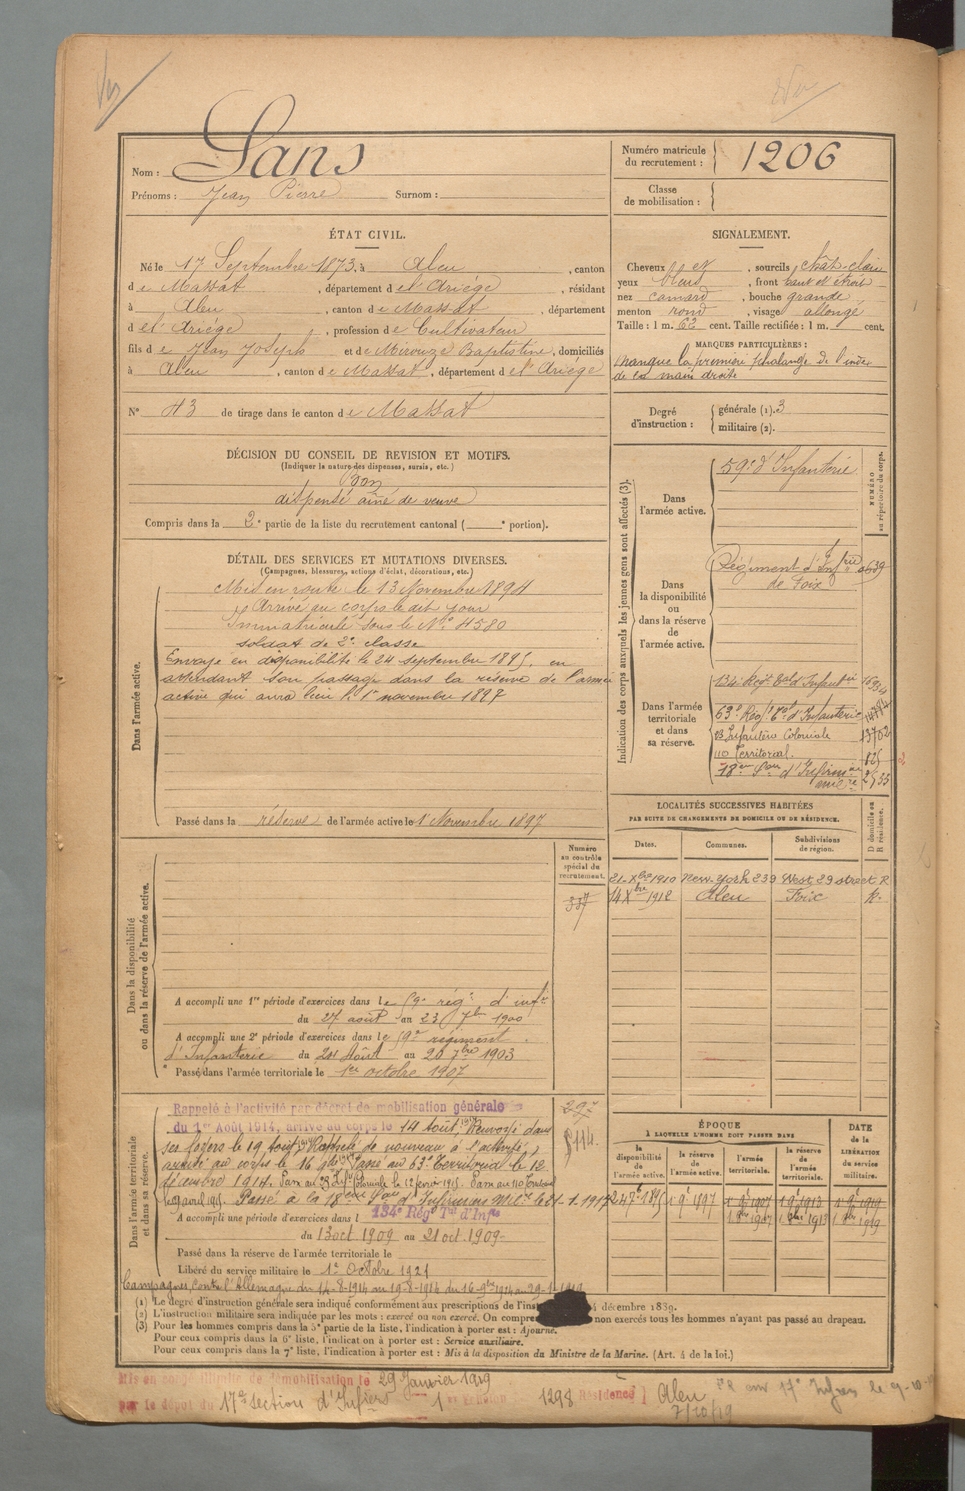 Nom : Sans
Prénoms : Jean Pierre Surnom :
Numéro matricule du recrutement : 1206
Classe de mobilisation :
ÉTAT CIVIL.
Né le 17 Septembre 1873, à Aleu, canton
de Massat, département de l'Ariège, résidant
à Aleu, canton de Massat, département
de l'Ariège, profession de Cultivateur
fils de Jean Joseph et de Mirouze Baptistine, domiciliés
à Aleu, canton de Massat, département de l'Ariège
N° 43 de tirage dans le canton de Massat
SIGNALEMENT.
Cheveux et, sourcils chât-clairs
yeux bleus, front haut et étroit
nez camard, bouche grande
menton rond, visage allongé
Taille : 1 m. 62 cent. Taille rectifiée : 1 m. cent.
MARQUES PARTICULIÈRES :
Manque la première phalange de l'index
de la main droite
Degré d'instruction : générale (1). 3
militaire (2).
DÉCISION DU CONSEIL DE REVISION ET MOTIFS.
(Indiquer la nature des dispenses, sursis, etc.)
Bon
dispensé aîné de veuve
Compris dans la 2e partie de la liste du recrutement cantonal ( e portion).
DÉTAIL DES SERVICES ET MUTATIONS DIVERSES.
(Campagnes, blessures, actions d'éclat, décorations, etc.)
Dans l'armée active.
Mis en route le 13 Novembre 1894
Arrivé au corps le dit jour
Immatriculé sous le N° 4580
soldat de 2e classe
Envoyé en disponibilité le 24 septembre 1895, en
attendant son passage dans la réserve de l'armée
active qui aura lieu le 1er novembre 1897
Passé dans la réserve de l'armée active le 1 Novembre 1897
Indication des corps auxquels les jeunes gens sont affectés (3).
NUMÉRO au répertoire du corps.
Dans l'armée active.
59e d'Infanterie
Dans la disponibilité ou dans la réserve de l'armée active.
Régiment d'Infrie
de Foix
Dans l'armée territoriale et dans sa réserve.
134e Régt Tal d'Infanterie
63e Régt Tal d'Infanterie
Infanterie Coloniale
110 Territorial
18eme Son d'Infirm
LOCALITÉS SUCCESSIVES HABITÉES
PAR SUITE DE CHANGEMENTS DE DOMICILE OU DE RÉSIDENCE.
Dates. Communes. Subdivisions de région. D domicile ou R résidence.
21-Xbre 1910 New-York 239 West 29 street R
14 Xbre 1912 Aleu Foix R.
Numéro au contrôle spécial du recrutement.
387
Dans la disponibilité ou dans la réserve de l'armée active.
A accompli une 1re période d'exercices dans le 59e rég. d'infie
du 27 août au 23 7bre 1900
A accompli une 2e période d'exercices dans le 59e régiment
d'Infanterie du 24 Août au 20 7bre 1903
Passé dans l'armée territoriale le 1er octobre 1907
Dans l'armée territoriale et dans sa réserve.
Rappelé à l'activité par décret de mobilisation générale
du 1er Août 1914, arrivé au corps le 14 Août 1914. Renvoyé dans
ses foyers le 19 Août 1914. Rappelé de nouveau à l'activité,
arrivé au corps le 16 9bre 1914. Passé au 63e Territorial le 12
décembre 1914. Passé au Infie Coloniale le 12 1915. Passé au 110 Territorial
le 9 avril 1915. Passé à la 18eme Son d'Infirmiers Mlres le 21-1-1917
134e Régt Tal d'Infie
A accompli une période d'exercices dans l
du 13 oct 1909 au 21 oct. 1909
Passé dans la réserve de l'armée territoriale le
Libéré du service militaire le 1er Octobre 1921
Campagnes contre l'Allemagne du 14-8-1914 au 19-8-1914 du 16-9bre 1914 au 29-1-1919
ÉPOQUE
A LAQUELLE L'HOMME DOIT PASSER DANS
la disponibilité de l'armée active. la réserve de l'armée active. l'armée territoriale. la réserve de l'armée territoriale.
DATE de la LIBÉRATION du service militaire.
(1) Le degré d'instruction générale sera indiqué conformément aux prescriptions de l'ins 4 décembre 1889.
(2) L'instruction militaire sera indiquée par les mots : exercé ou non exercé. On compre non exercés tous les hommes n'ayant pas passé au drapeau.
(3) Pour les hommes compris dans la 5e partie de la liste, l'indication à porter est : Ajourné.
Pour ceux compris dans la 6e liste, l'indication à porter est : Service auxiliaire.
Pour ceux compris dans la 7e liste, l'indication à porter est : Mis à la disposition du Ministre de la Marine. (Art. 4 de la loi.)
Mis en congé illimité de démobilisation le 29 Janvier 1919
par le dépôt du 17e section d'Infiers 1er Echelon 1298 Résidence Aleu
7/10/19